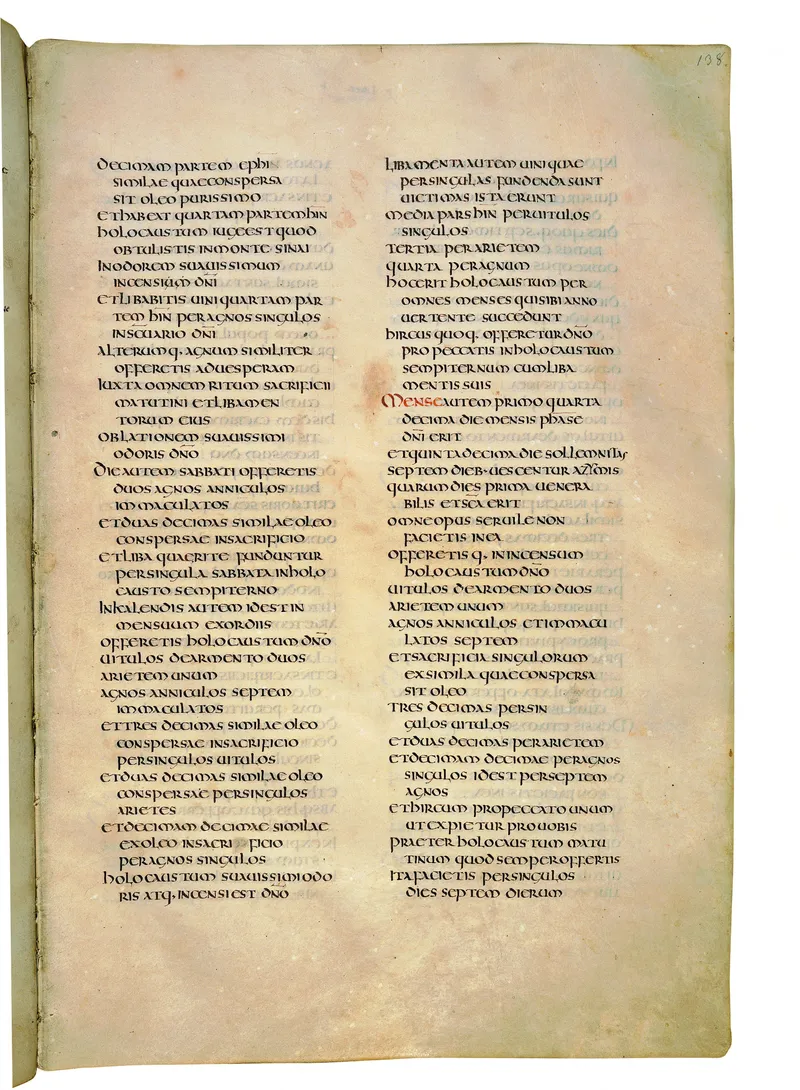 138
decimam partem ephi
similae quae conspersa
sit oleo purissimo
et habeat quartam partem hin
holocaustum iuge est quod
obtulistis in monte sinai
In odorem suauissimum
incensium dn̄i
et libabitis uini quartam par
tem hin per agnos singulos
in scuario dn̄i
alterumq· agnum similiter
offeretis ad uesperam
Iuxta omnem ritum sacrificii
matutini et libamen
torum eius
oblationem suauissimi
odoris dn̄o
Die autem sabbati offeretis
duos agnos anniculos
immaculatos
et duas decimas similae oleo
conspersae in sacrificio
et liba quae rite funduntur
per singula sabbata in holo
causto sempiterno
In kalendis autem id est in
mensuum exordiis
offeretis holocaustum dn̄o
uitulos de armento duos
arietem unum
agnos anniculos septem
immaculatos
et tres decimas similae oleo
conspersae in sacrificio
per singulos uitulos
et duas decimas similae oleo
conspersae per singulos
arietes
et decimam decimae similae
ex oleo in sacri ficio
per agnos singulos
holocaustum suauissimi odo
ris atq· incensi est dn̄o
Libamenta autem uini quae
per singulas fundenda sunt
uictimas ista erunt
media pars hin per uitulos
singulos
tertia per arietem
quarta per agnum
hoc erit holocaustum per
omnes menses qui sibi anno
uertente succedunt
hircus quoq· offeretur dn̄o
pro peccatis in holocaustum
sempiternum cum liba
mentis suis
Mense autem primo quarta
decima die mensis phase
dn̄i erit
et quintadecima die sollemnitas
septem dieb· uescentur azymis
quarum dies prima uenera
bilis et sc̄a erit
omne opus seruile non
facietis in ea
offeretisq· in incensum
holocaustum dn̄o
uitulos de armento duos
arietem unum
agnos anniculos et immacu
latos septem
et sacrificia singulorum
ex simila quae conspersa
sit oleo
tres decimas per sin
gulos uitulos
et duas decimas per arietem
et decimam decimae per agnos
singulos id est per septem
agnos
et hircum pro peccato unum
ut expietur pro uobis
praeter holocaustum matu
tinum quod semper offertis
Ita facietis per singulos
dies septem dierum